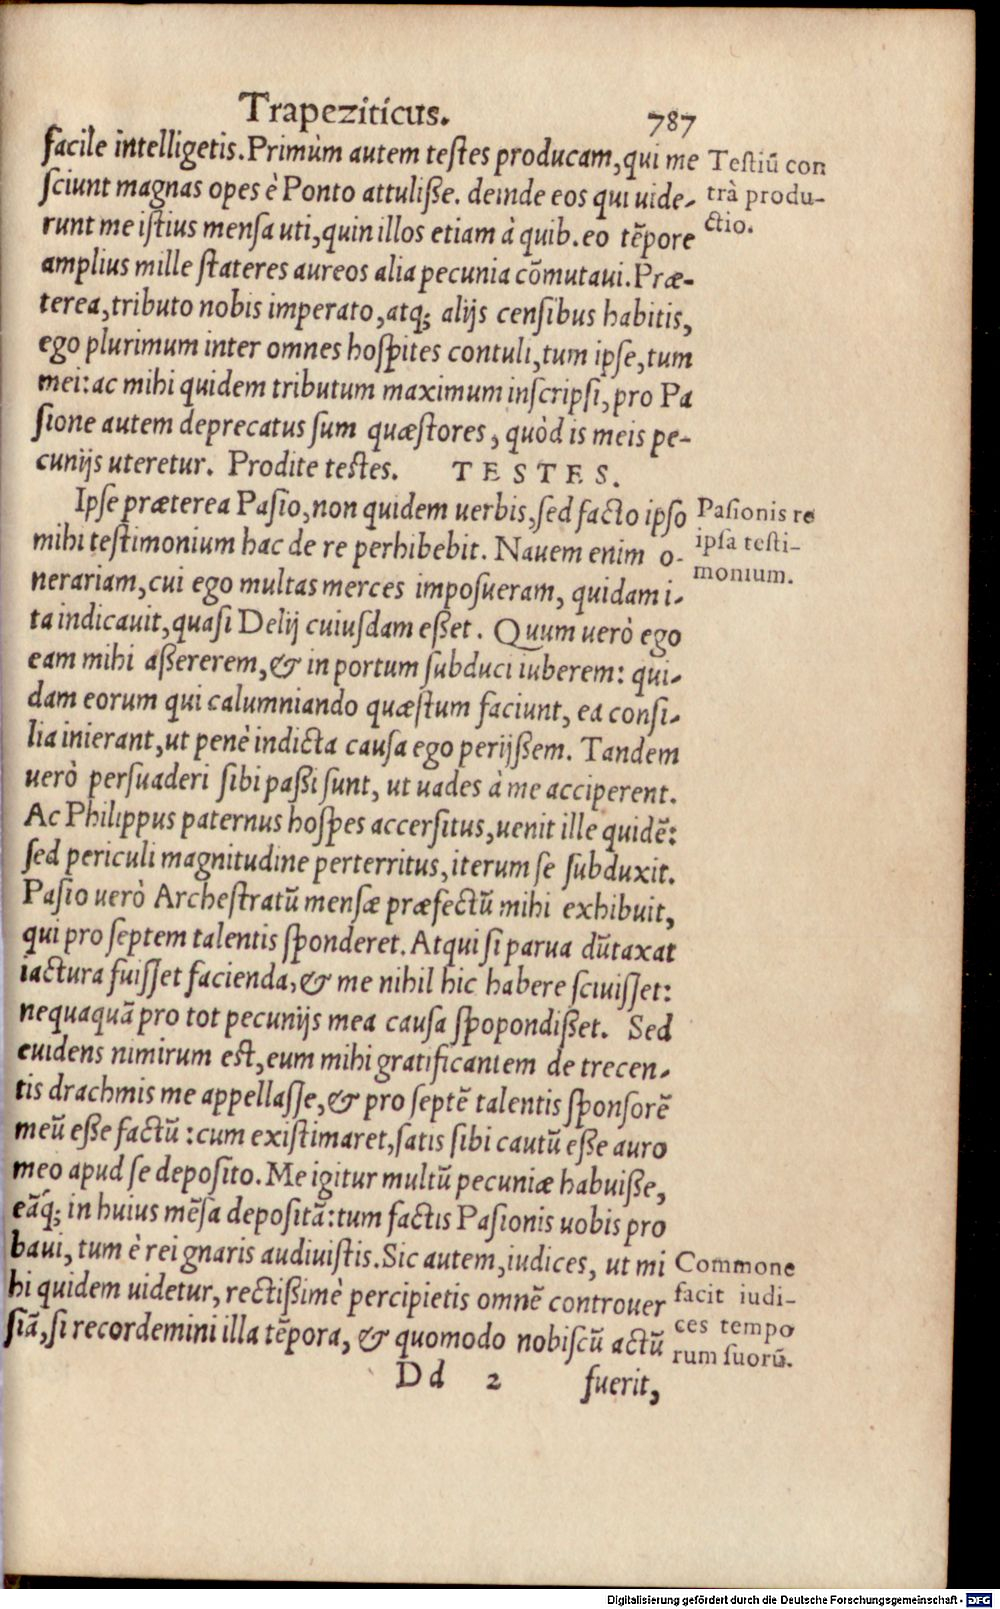 Trapeziticus. 787
facile intelligetis. Primùm autem testes producam, qui me
sciunt magnas opes è Ponto attulisse. deinde eos qui uide-
runt me istius mensa uti, quin illos etiam à quib. eo tẽpore
amplius mille stateres aureos alia pecunia cõmutaui. Præ-
terea, tributo nobis imperato, atq; alijs censibus habitis,
ego plurimum inter omnes hospites contuli, tum ipse, tum
mei: ac mihi quidem tributum maximum inscripsi, pro Pa
sione autem deprecatus sum quæstores, quòd is meis pe-
cunijs uteretur. Prodite testes. TESTES.
Testiũ con
trà produ-
ctio.
Ipse præterea Pasio, non quidem uerbis, sed facto ipso
mihi testimonium hac de re perhibebit. Nauem enim o-
nerariam, cui ego multas merces imposueram, quidam i-
ta indicauit, quasi Delij cuiusdam eßet. Quum uerò ego
eam mihi aßererem, & in portum subduci iuberem: qui-
dam eorum qui calumniando quæstum faciunt, ea consi-
lia inierant, ut penè indicta causa ego perijßem. Tandem
uerò persuaderi sibi paßi sunt, ut uades à me acciperent.
Ac Philippus paternus hospes accersitus, uenit ille quidẽ:
sed periculi magnitudine perterritus, iterum se subduxit.
Pasio uerò Archestratũ mensæ præfectũ mihi exhibuit,
qui pro septem talentis sponderet. Atqui si parua dũtaxat
iactura fuisset facienda, & me nihil hic habere sciuisset:
nequaquã pro tot pecunijs mea causa spopondißet. Sed
euidens nimirum est, eum mihi gratificantem de trecen-
tis drachmis me appellasse, & pro septẽ talentis sponsorẽ
meũ eße factũ: cum existimaret, satis sibi cautũ eße auro
meo apud se deposito. Me igitur multũ pecuniæ habuiße,
eãq; in huius mẽsa depositã: tum factis Pasionis uobis pro
baui, tum è rei gnaris audiuistis. Sic autem, iudices, ut mi
hi quidem uidetur, rectißimè percipietis omnẽ controuer
siã, si recordemini illa tẽpora, & quomodo nobiscũ actũ
Pasionis re
ipsa testi-
monium.
Commone
facit iudi-
ces tempo
rum suorũ.
Dd 2 fuerit,
Digitalisierung gefördert durch die Deutsche Forschungsgemeinschaft - DFG